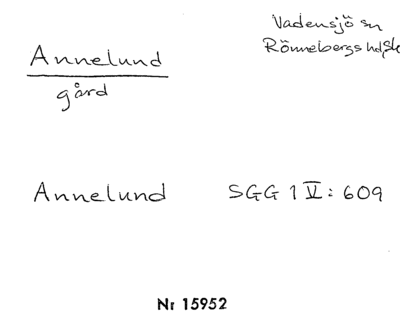 Vadensjö sn
Rönnebergs hd, Sk
Annelund
gård
Annelund SGG 1 V: 609
Nr 15952